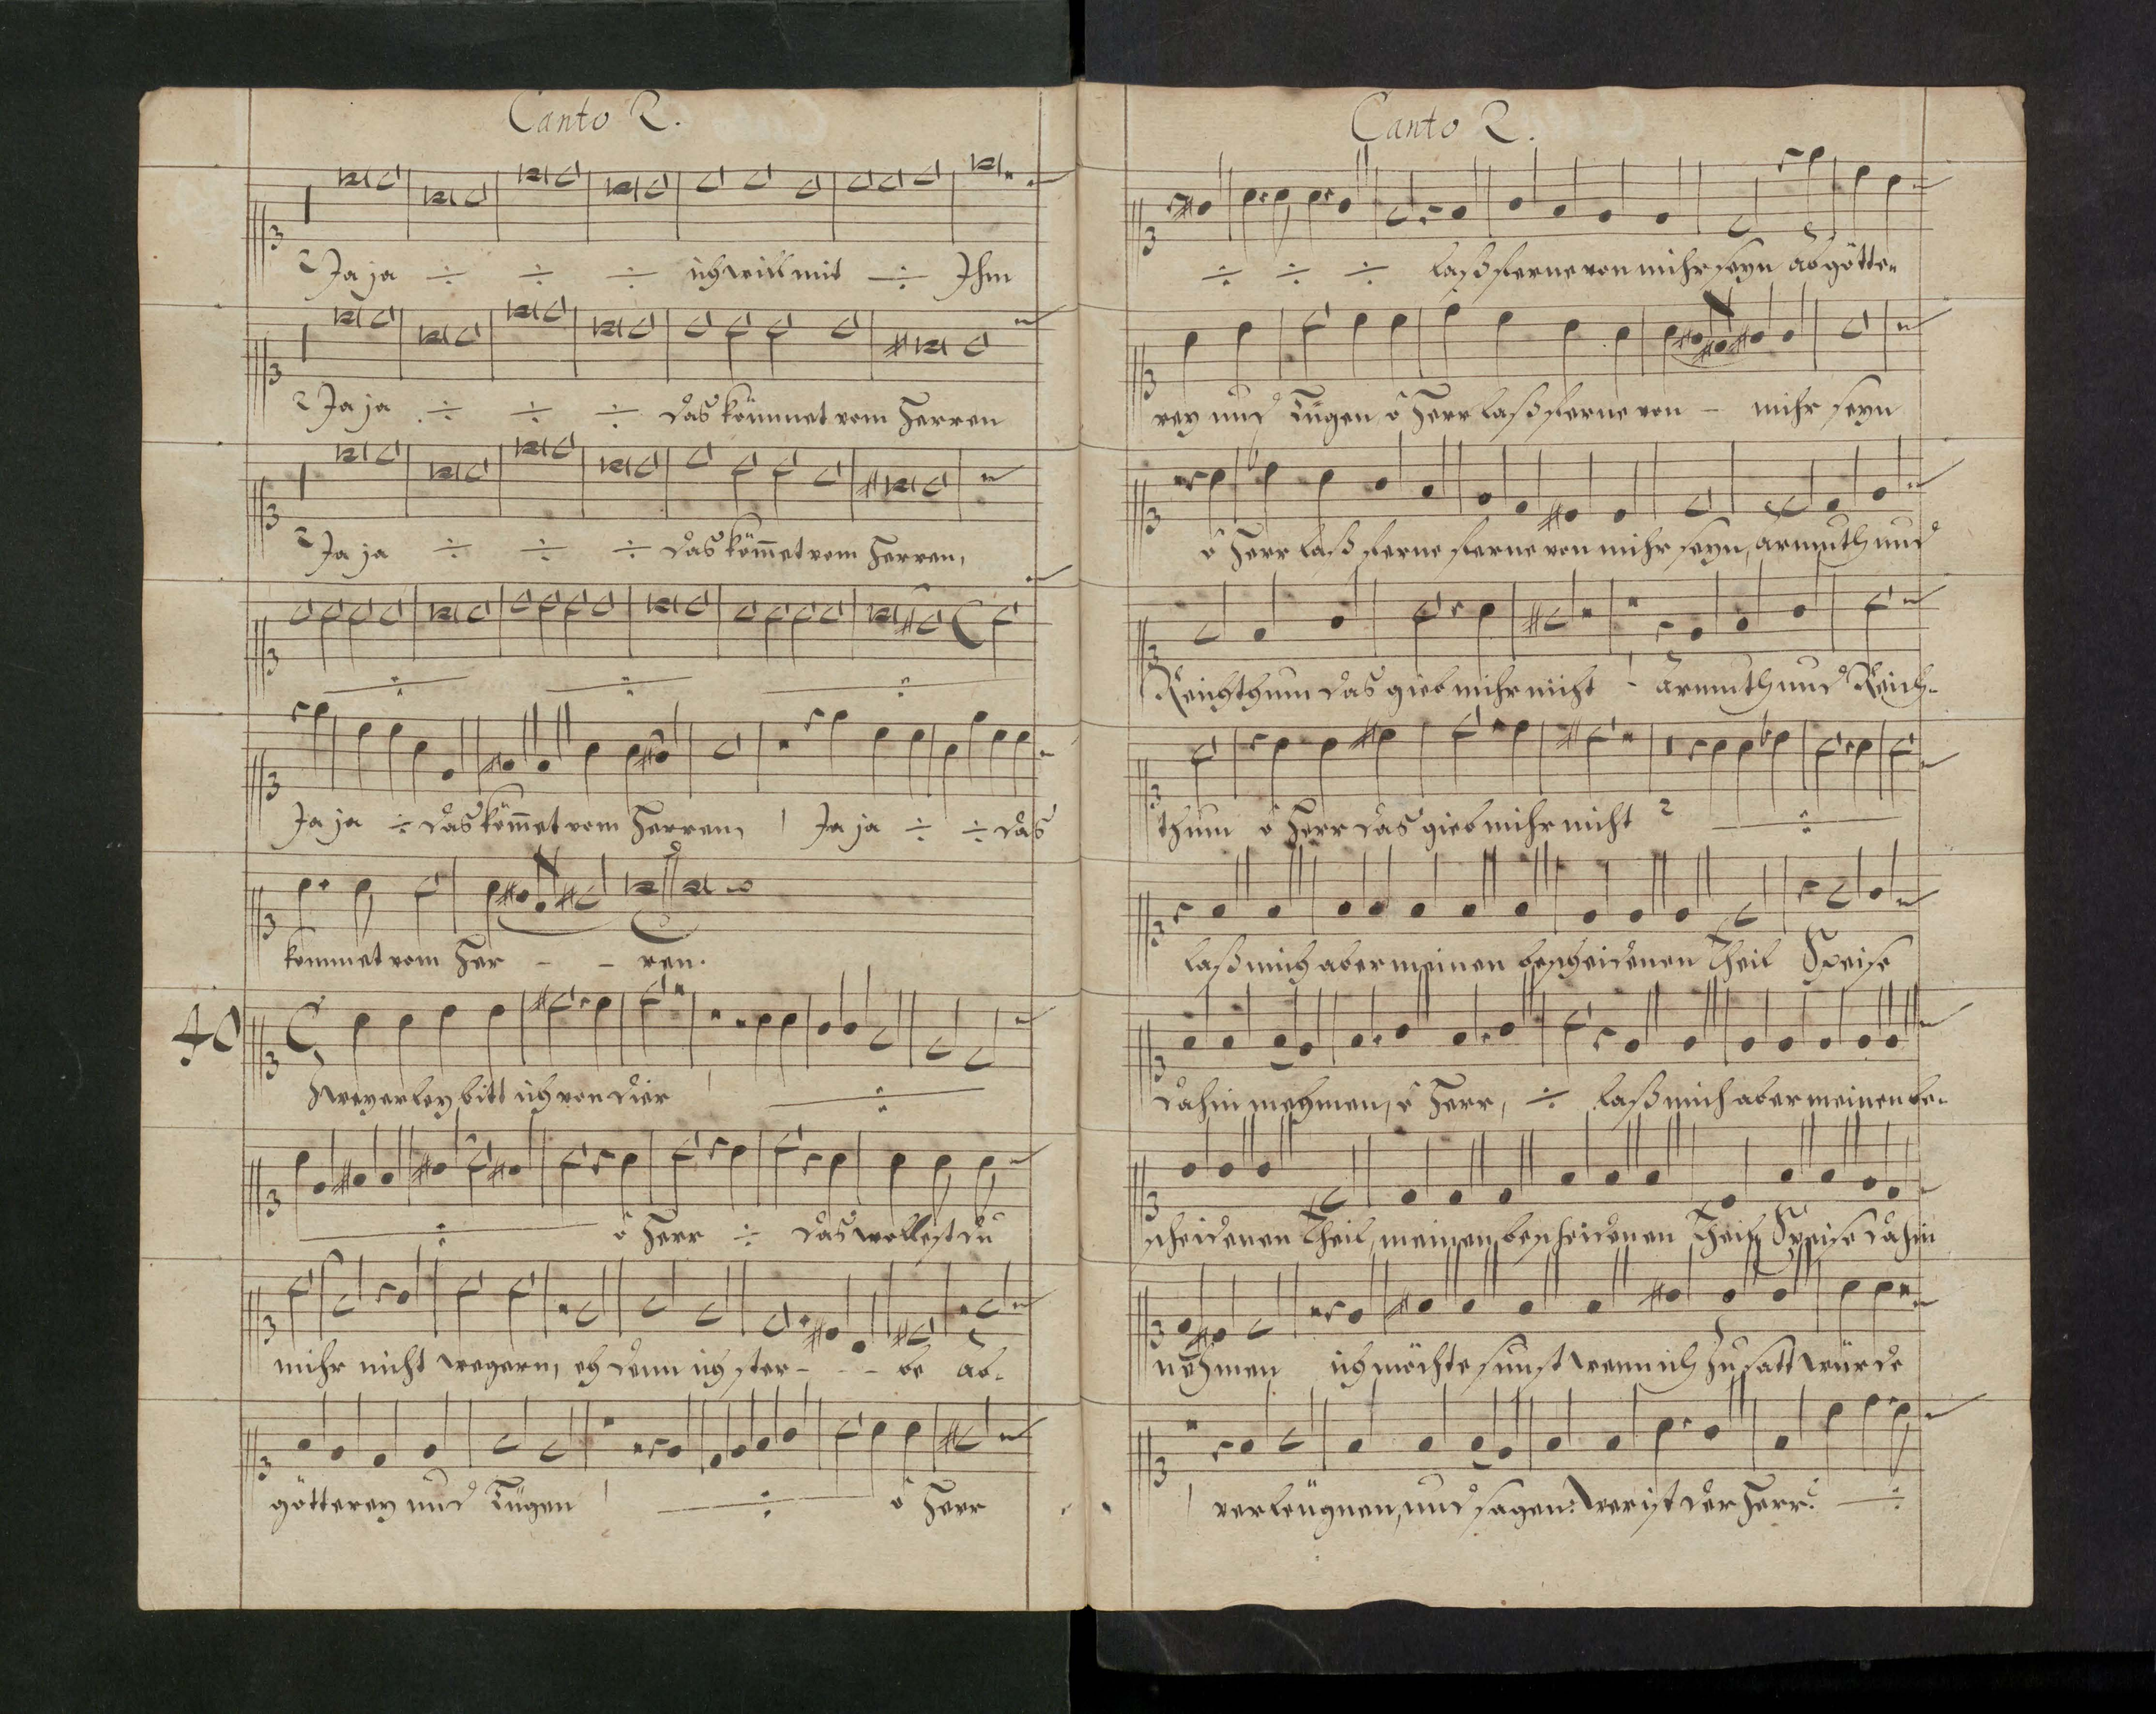 Canto 2.
Ja ja ich will mit Ihm
Ja ja das kömmet vom Herren
Ja ja das köm̄et vom Herren,
Ja ja das köm̄et vom Herren, Ja ja das
kommet vom Her - - ren.
40
Zweyerley bitt ich von dier
ô Herr das wollest du
mihr nicht wegern, eh denn ich ster - - - be ab-
götterey und Lügen ô Herr
Canto 2.
laß ferne von mihr seyn abgötte-
rey und Lügen ô Herr laß ferne von - mihr seyn
ô Herr laß ferne ferne von mihr seyn, armuth und
Reichthum das gieb mihr nicht armuth und Reich-
thum ô Herr das gieb mihr nicht
laß mich aber meinen bescheidenen Theil Speise
dahin nehmen, ô Herr, laß mich aber meinen be-
scheidenen Theil, meinen bescheidenen Theil, Speise dahin
nehmen ich möchte sunst wenn ich zu satt würde
verleügnen, und sagen: Wer ist der Herr?